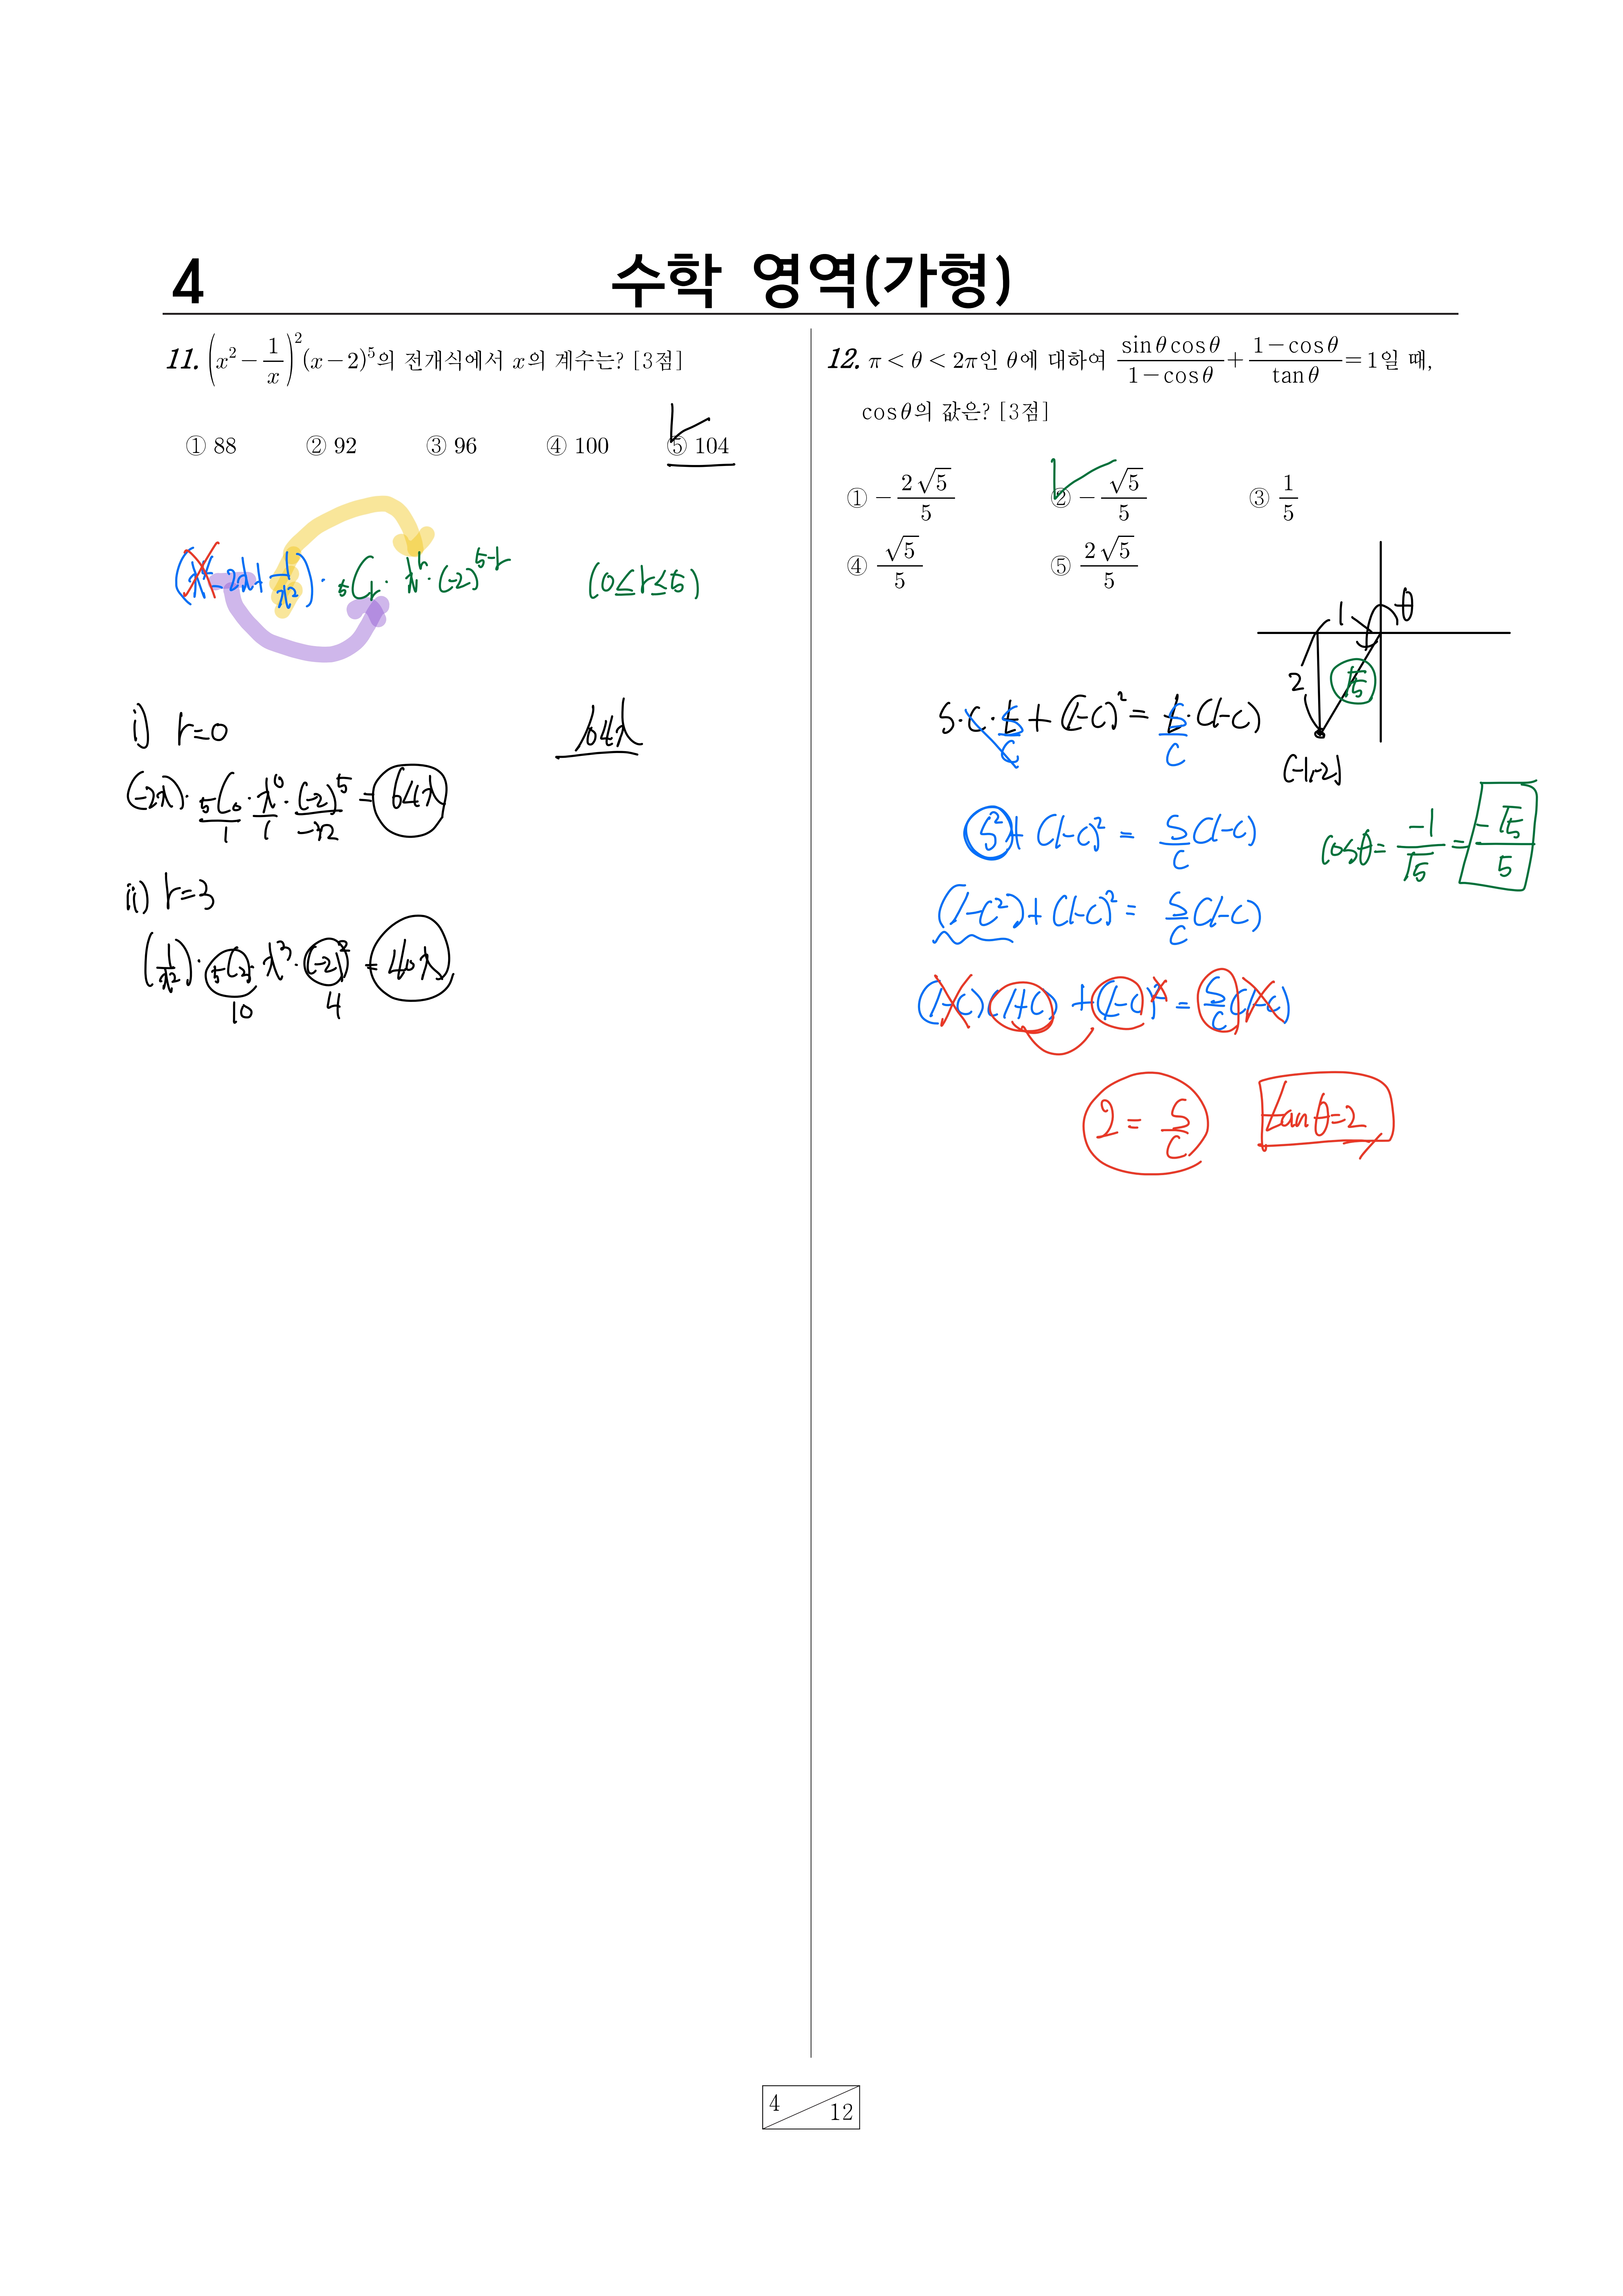 4
수학 영역(가형)
11. (x² − 1/x)² (x−2)⁵의 전개식에서 x의 계수는? [3점]
① 88 ② 92 ③ 96 ④ 100 ⑤ 104
(x⁴−2x+1/x²)· ₅Cᵣ · xʳ·(−2)⁵⁻ʳ (0≤r≤5)
i) r=0
64x
(−2x)· ₅C₀ · x⁰ · (−2)⁵ = 64x
1 1 −32
ii) r=3
(1/x²)· ₅C₃ · x³ · (−2)² = 40x
10 4
12. π<θ<2π인 θ에 대하여 sinθcosθ/(1−cosθ) + (1−cosθ)/tanθ = 1일 때,
cosθ의 값은? [3점]
① −2√5/5 ② −√5/5 ③ 1/5
④ √5/5 ⑤ 2√5/5
1 θ
2 √5
(−1,−2)
s·c·t s/c + (1−c)² = t s/c ·(1−c)
s² + (1−c)² = s/c (1−c)
cosθ = −1/√5 = −√5/5
(1−c²)+(1−c)² = s/c (1−c)
(1−c)(1+c) + (1−c)² = s/c (1−c)
2 = s/c tanθ=2
4 12